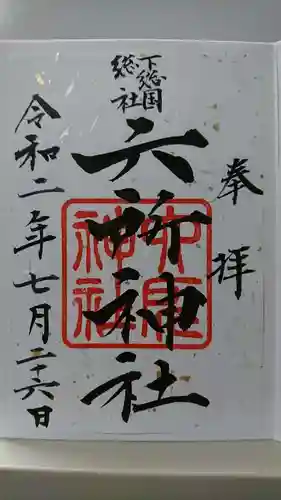 奉拝
下総国
総社
六所神社
令和二年七月二十六日